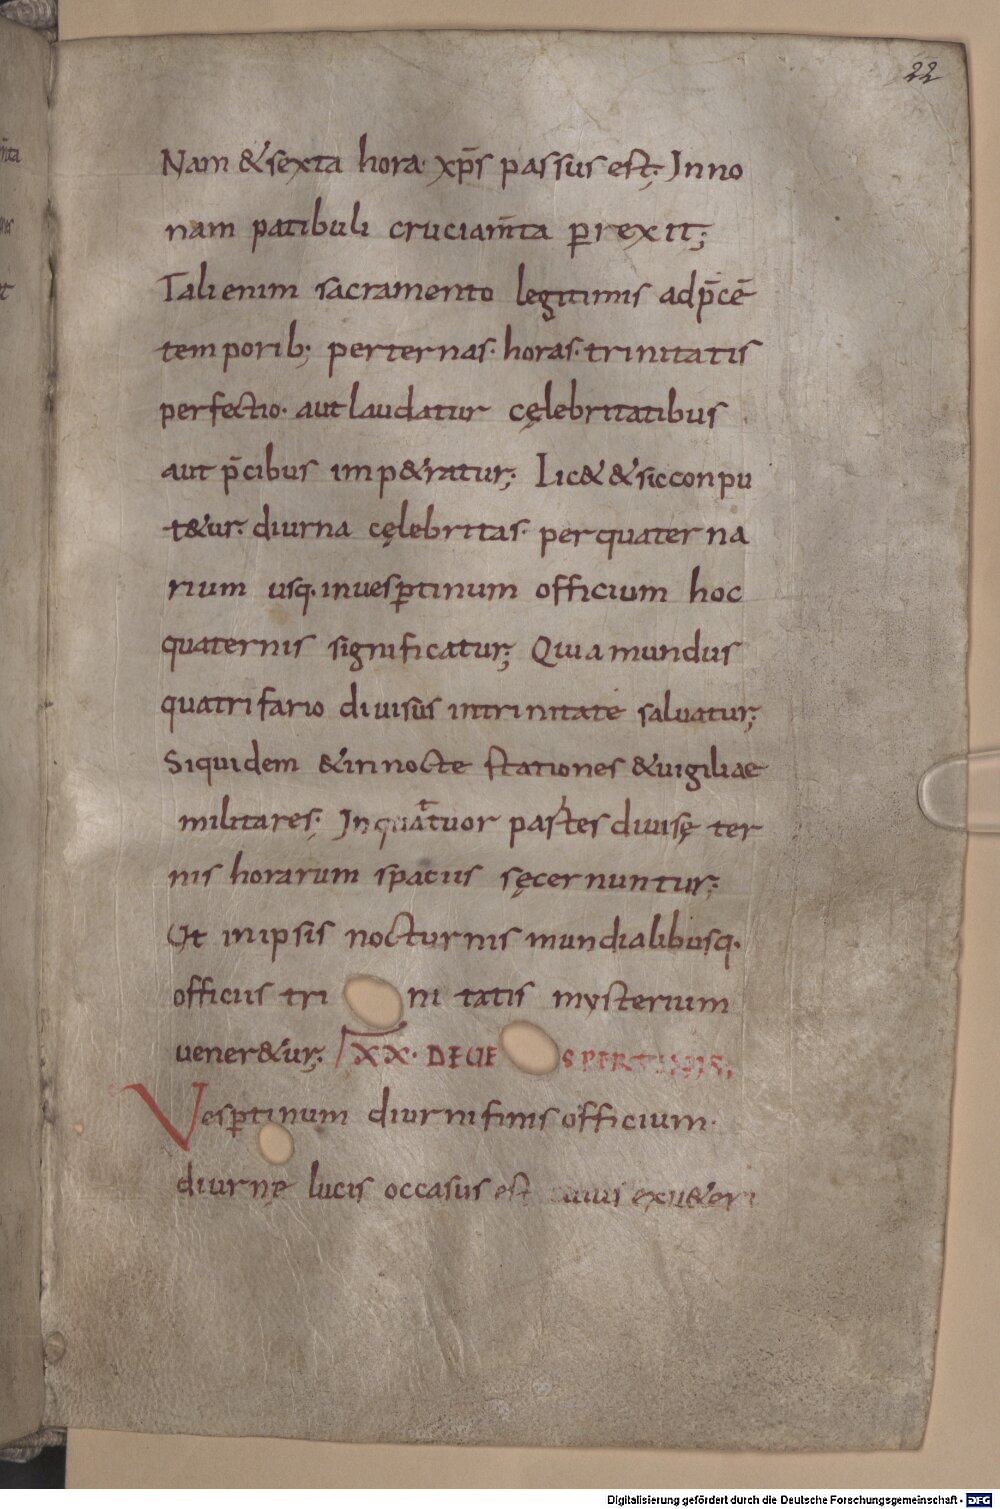 22
Nam & sexta hora· xp̄s passus est; In no
nam patibuli cruciam̄ta perrexit;
Tali enim sacramento legitimis ad p̄cē
temporib; per ternas· horas· trinitatis
perfectio· aut laudatur cęlebritatibus
aut p̄cibus imp&ratur; Lic& & sic conpu
t&ur· diurna cęlebritas· per quaterna
rium usq· in uesꝑtinum officium hoc
quaternis significatur; Quia mundus
quatrifario diuisus in trinitate saluatur;
Siquidem & in nocte stationes & uigiliae
militares; In quattuor partes diuisę ter
nis horarum spatiis sęcernuntur;
Ut in ipsis nocturnis mundialibusq·
officiis tri ni tatis mysterium
uener&ur; XX· DE UE SPERTINIS;
Vesꝑtinum diurni finis officium·
diurnę lucis occasus est cuius ex u&eri
Digitalisierung gefördert durch die Deutsche Forschungsgemeinschaft - DFG